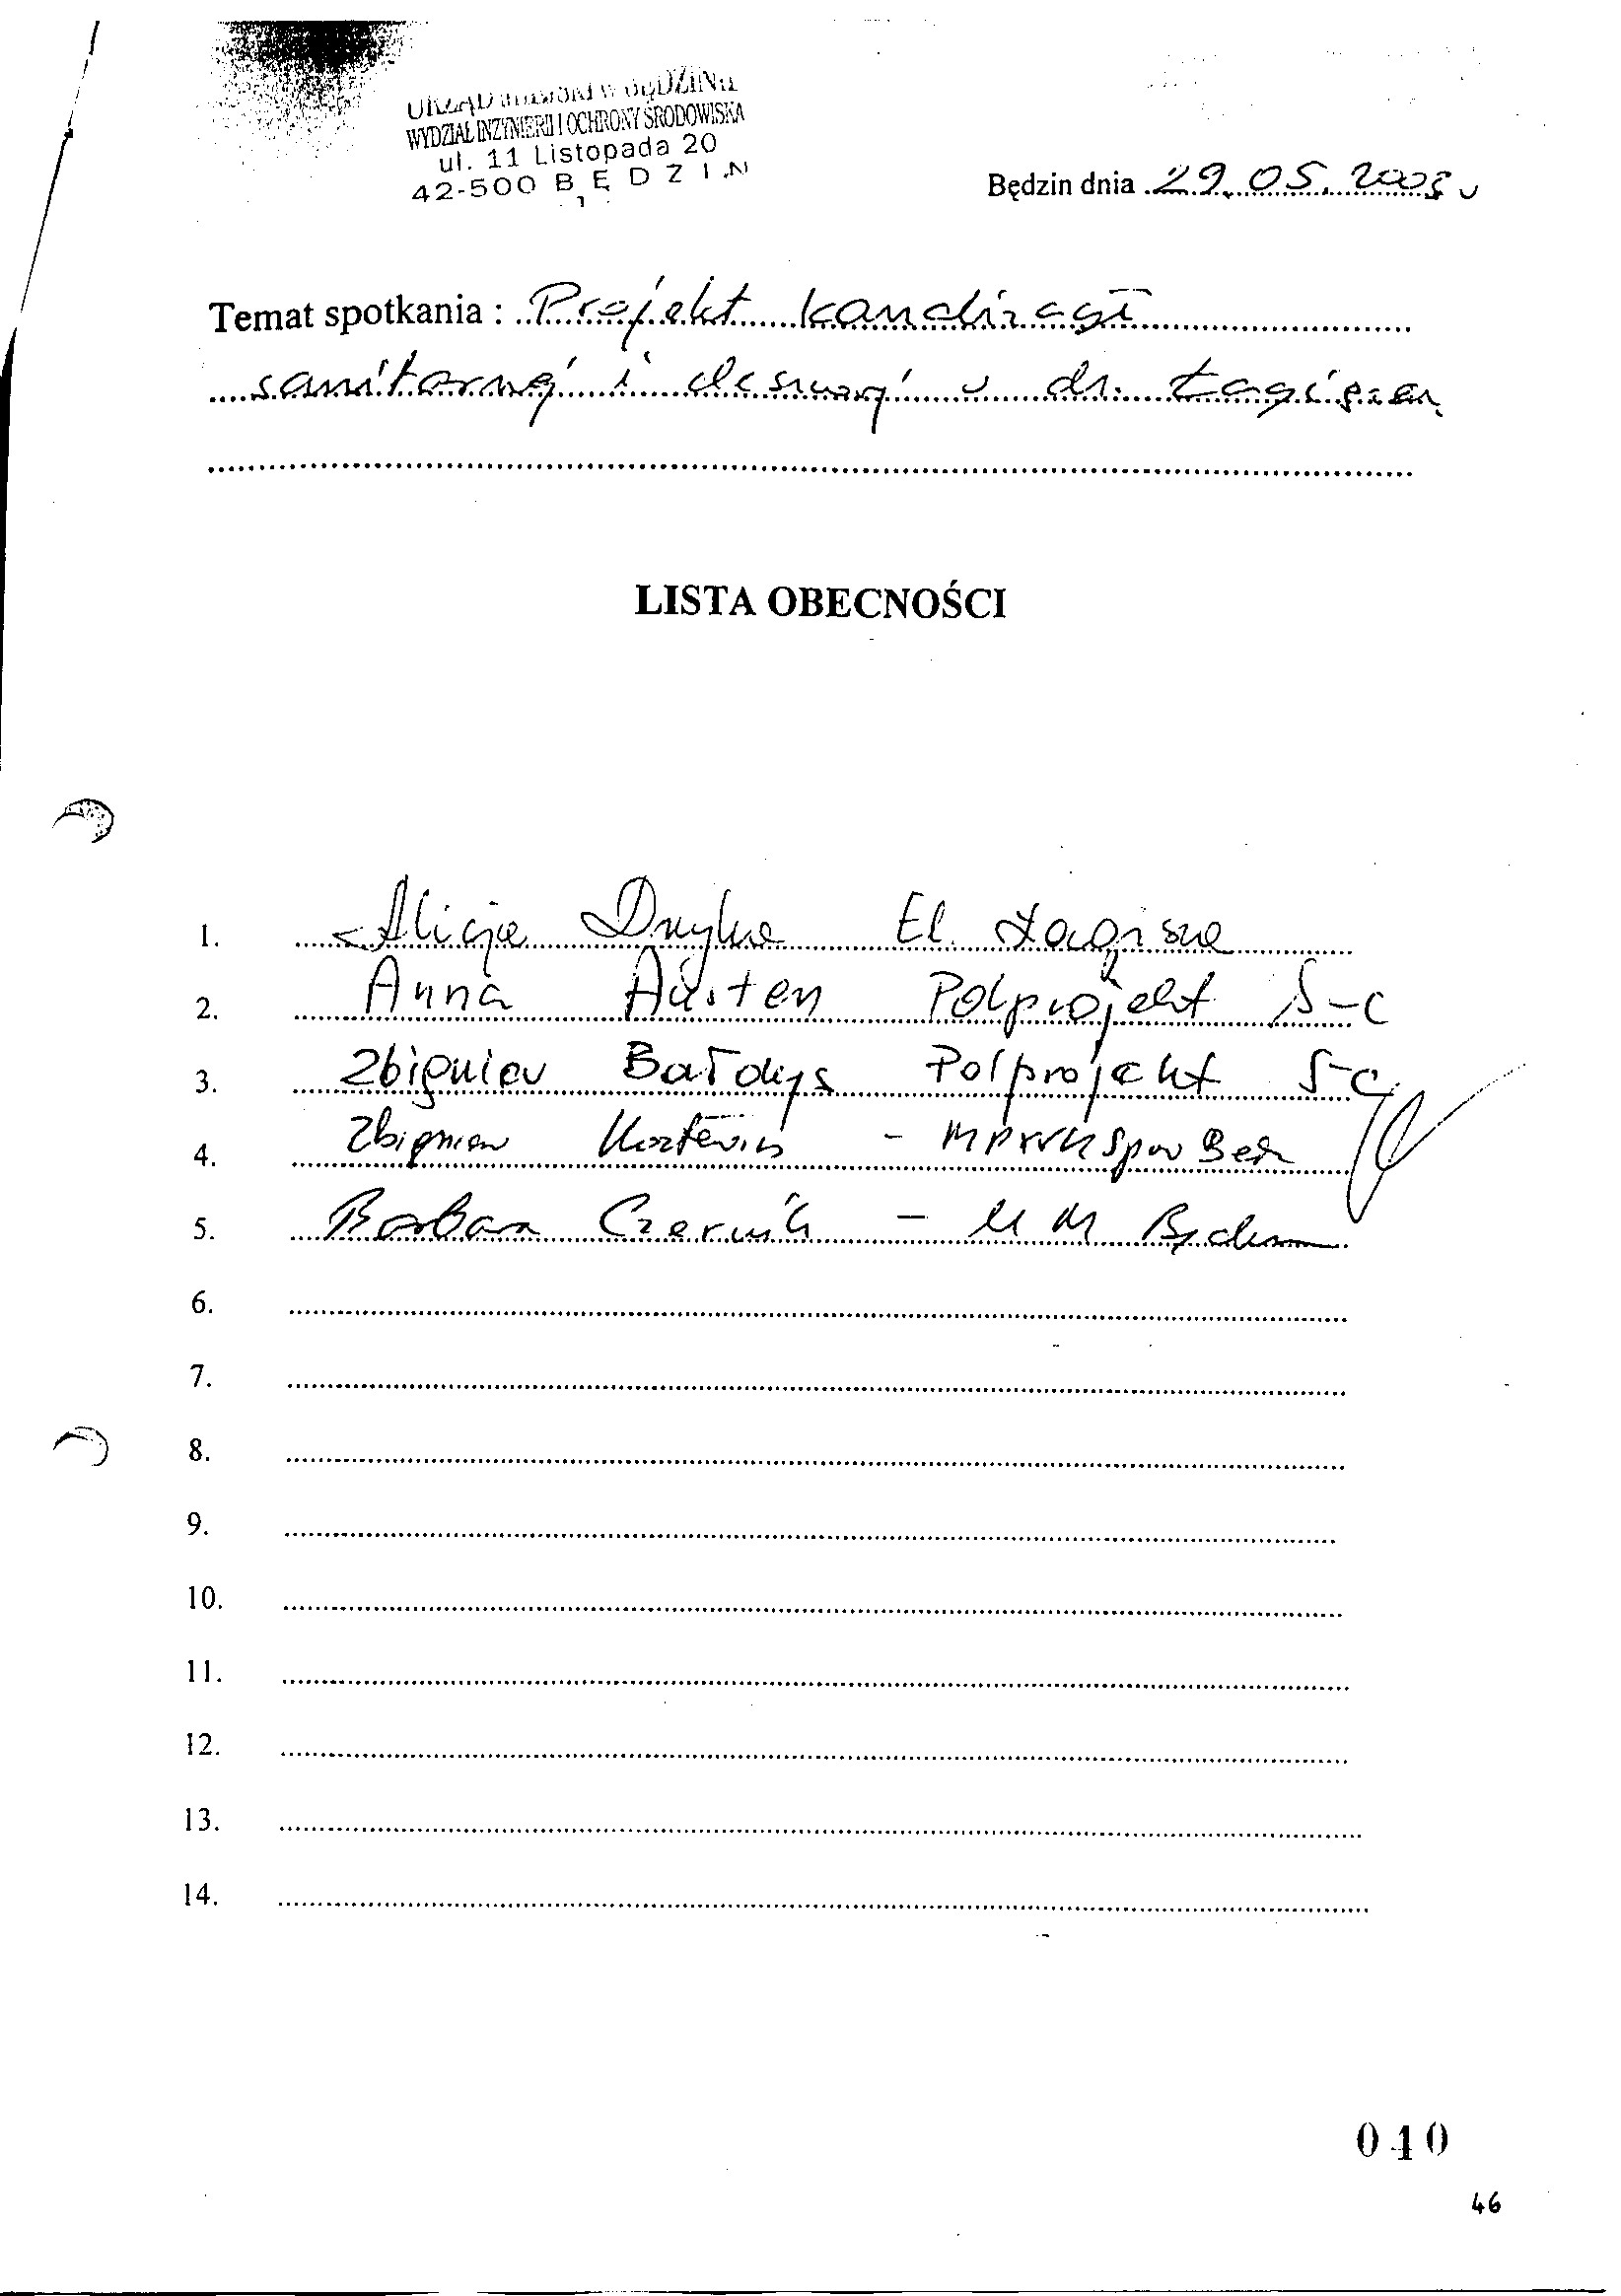 URZĄD MIEJSKI W BĘDZINIE
WYDZIAŁ INŻYNIERII I OCHRONY ŚRODOWISKA
ul. 11 Listopada 20
42-500 BĘDZIN
Będzin dnia 29.05.2005
Temat spotkania : Projekt kanalizacji
sanitarnej i deszczowej w dz. Łagisza
LISTA OBECNOŚCI
1. Alicja El. Łagisza
2. Anna Austen Polprojekt S-C
3. Zbigniew Bałdys Polprojekt S-C
4. Zbigniew -
5. Barbara Czernik - UM Będzin
6.
7.
8.
9.
10.
11.
12.
13.
14.
040
46